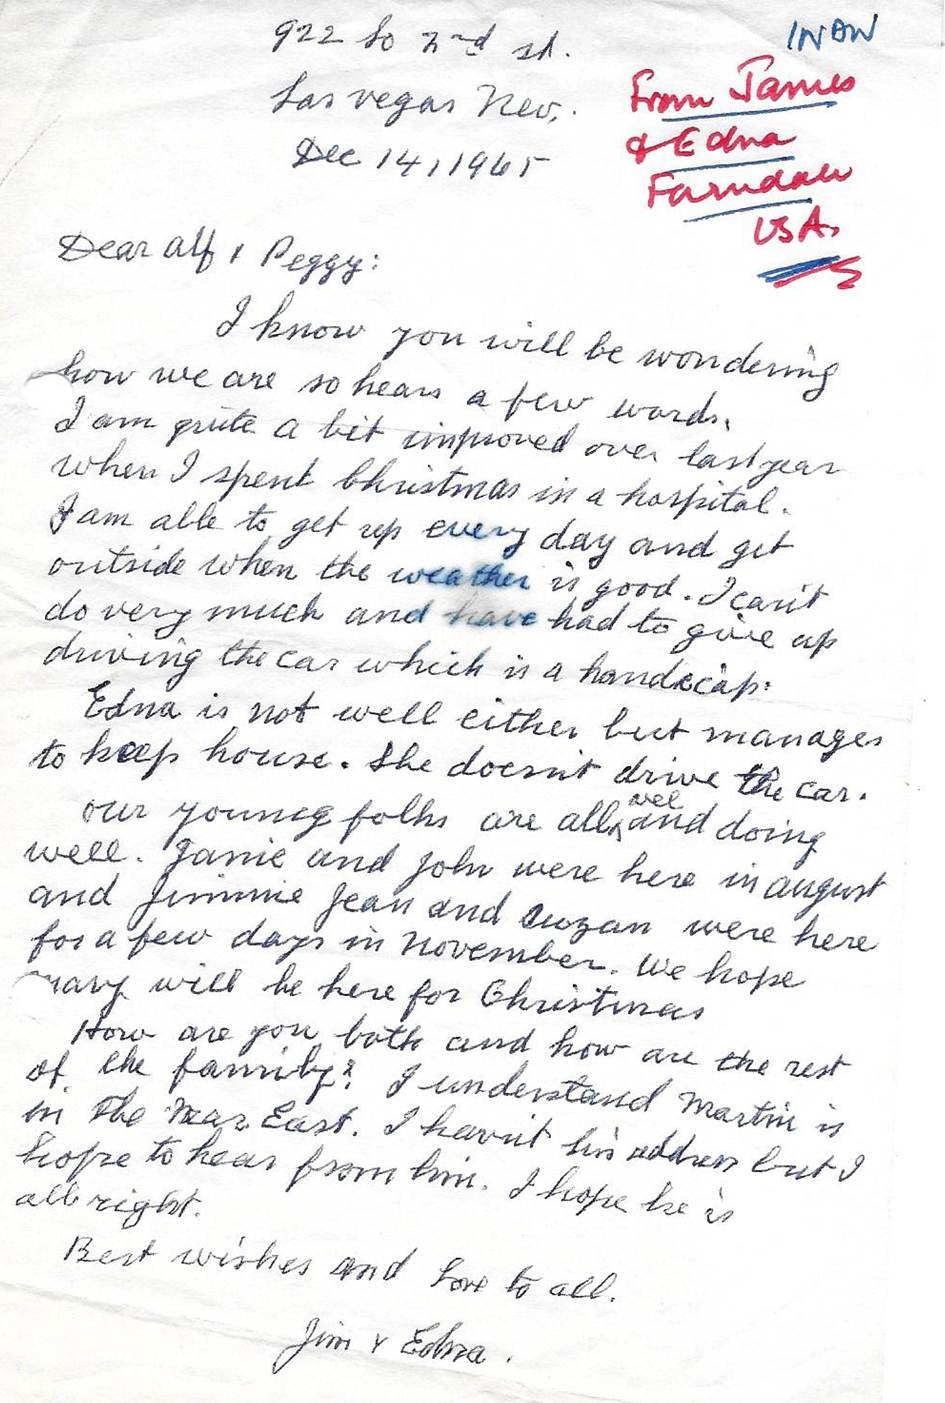 922 So 2nd st.
Las vegas Nev.
Dec 14, 1965
INDW
From James
& Edna
Farndale
USA.
Dear Alf & Peggy:
I know you will be wondering
how we are so hears a few words.
I am quite a bit improved over last year
when I spent Christmas in a hospital.
I am able to get up every day and get
outside when the weather is good. I can't
do very much and have had to give up
driving the car which is a handicap.
Edna is not well either but manages
to keep house. She doesn't drive the car.
our young folks are all well and doing
well. Janie and John were here in august
and Jimmie Jean and Suzan were here
for a few days in november. We hope
mary will be here for Christmas
How are you both and how are the rest
of the family? I understand Martin is
in the Near East. I havn't his address but I
hope to hear from him. I hope he is
all right.
Best wishes and Love to all.
Jim & Edna.